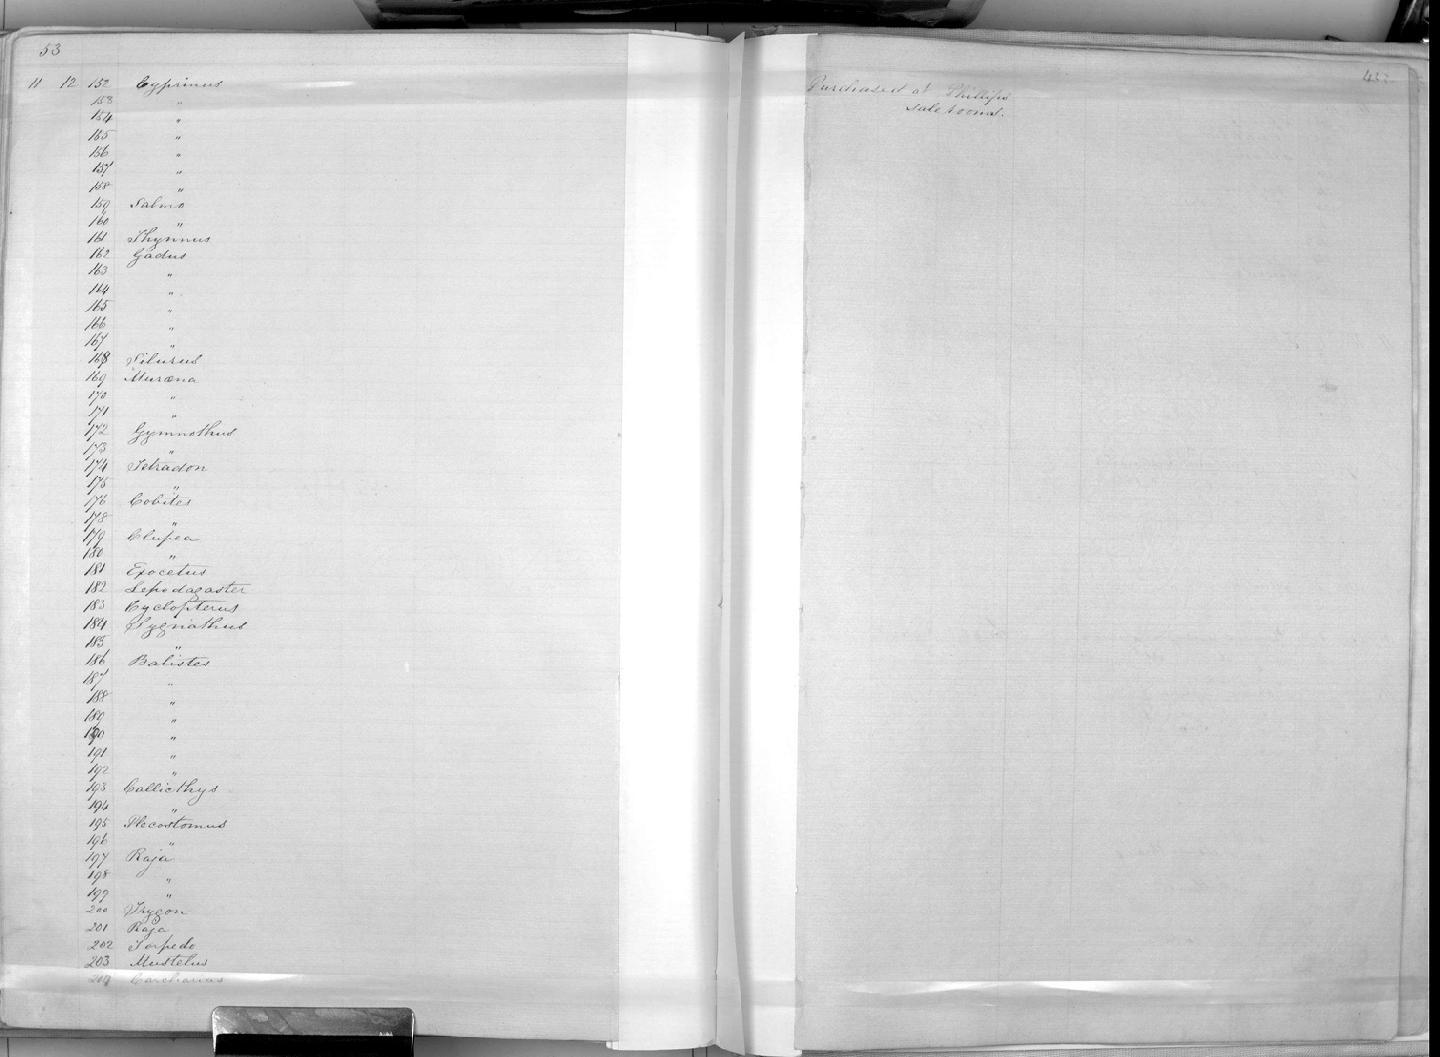 53
11 12 152 Cyprinus
153 "
154 "
155 "
156 "
157 "
158 "
159 Salmo
160 "
161 Thynnus
162 Gadus
163 "
164 "
165 "
166 "
167 "
168 Silurus
169 Muræna
170 "
171 "
172 Gymnothus
173 "
174 Tetradon
175 "
176 Cobites
178 "
179 Clupea
180 "
181 Exocetus
182 Lepodagaster
183 Cyclopterus
184 Sygnathus
185 "
186 Balistes
187 "
188 "
189 "
190 "
191 "
192 "
193 Callicthys
194 "
195 Plecostomus
196 "
197 Raja
198 "
199 "
200 Trygon
201 Raja
202 Torpedo
203 Mustelus
204 Carcharias
Purchased at Phillips
sale rooms.